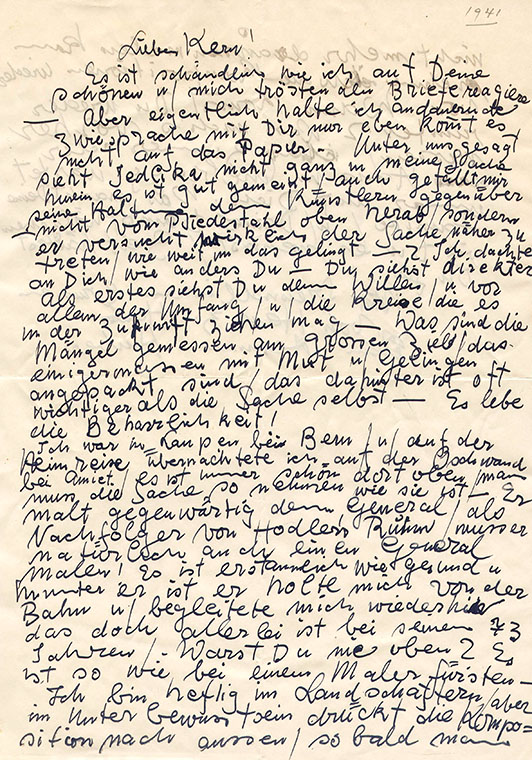 1941
Lieber Kern!
Es ist schändlich wie ich auf Deine
schönen u/ mich tröstenden Briefe reagiere
— Aber eigentlich halte ich andauernde
Zwiesprache mit Dir nur eben kommt es
nicht auf das Papier — Unter uns gesagt
sieht Jedlicka nicht ganz in meine Sache
hinein es ist gut gemeint/ auch gefällt mir
seine Haltung dem Künstlern gegenüber
— nicht vom Piedestahl oben herab/ sondern
er versucht wirklich der Sache näher zu
treten/ wie weit im das gelingt — ? Ich dachte
an Dich/ wie anders Du — Du siehst direkter
Als erstes siehst Du denn Willen/ u vor
allem der Umfang/ u/ die Kreise/ die es
in der Zukunft ziehen mag — Was sind die
Mängel gemessen am grossen Ziel/ das
einigermassen mit Mut u/ Gelingen
angepackt sind/ das dahinter ist oft
wichtiger als die Sache selbst — Es lebe
die Beharrlichkeit!
Ich war in Laupen bei Bern/ u/ auf der
Heimreise/ übernachtete ich auf der Oschwand
bei Amiet/ es ist immer schön dort oben/ man
muss die Sache so nehmen wie sie ist — Er
malt gegenwärtig denn General/ als
Nachfolger von Hodlers Ruhm/ musser
natürlich auch einen General
malen! Es ist erstaunlich wie gesund u
munter er ist er holte mich von der
Bahn u/ begleitete mich wieder hin
das doch allerlei ist bei seinen 73
Jahren/ Warst Du nie oben? Es
ist so wie bei einem Malerfürsten —
Ich bin heftig im Landschaftern/ aber
im Unterbewustsein drückt die Kompo=
sition nach aussen/ so bald man